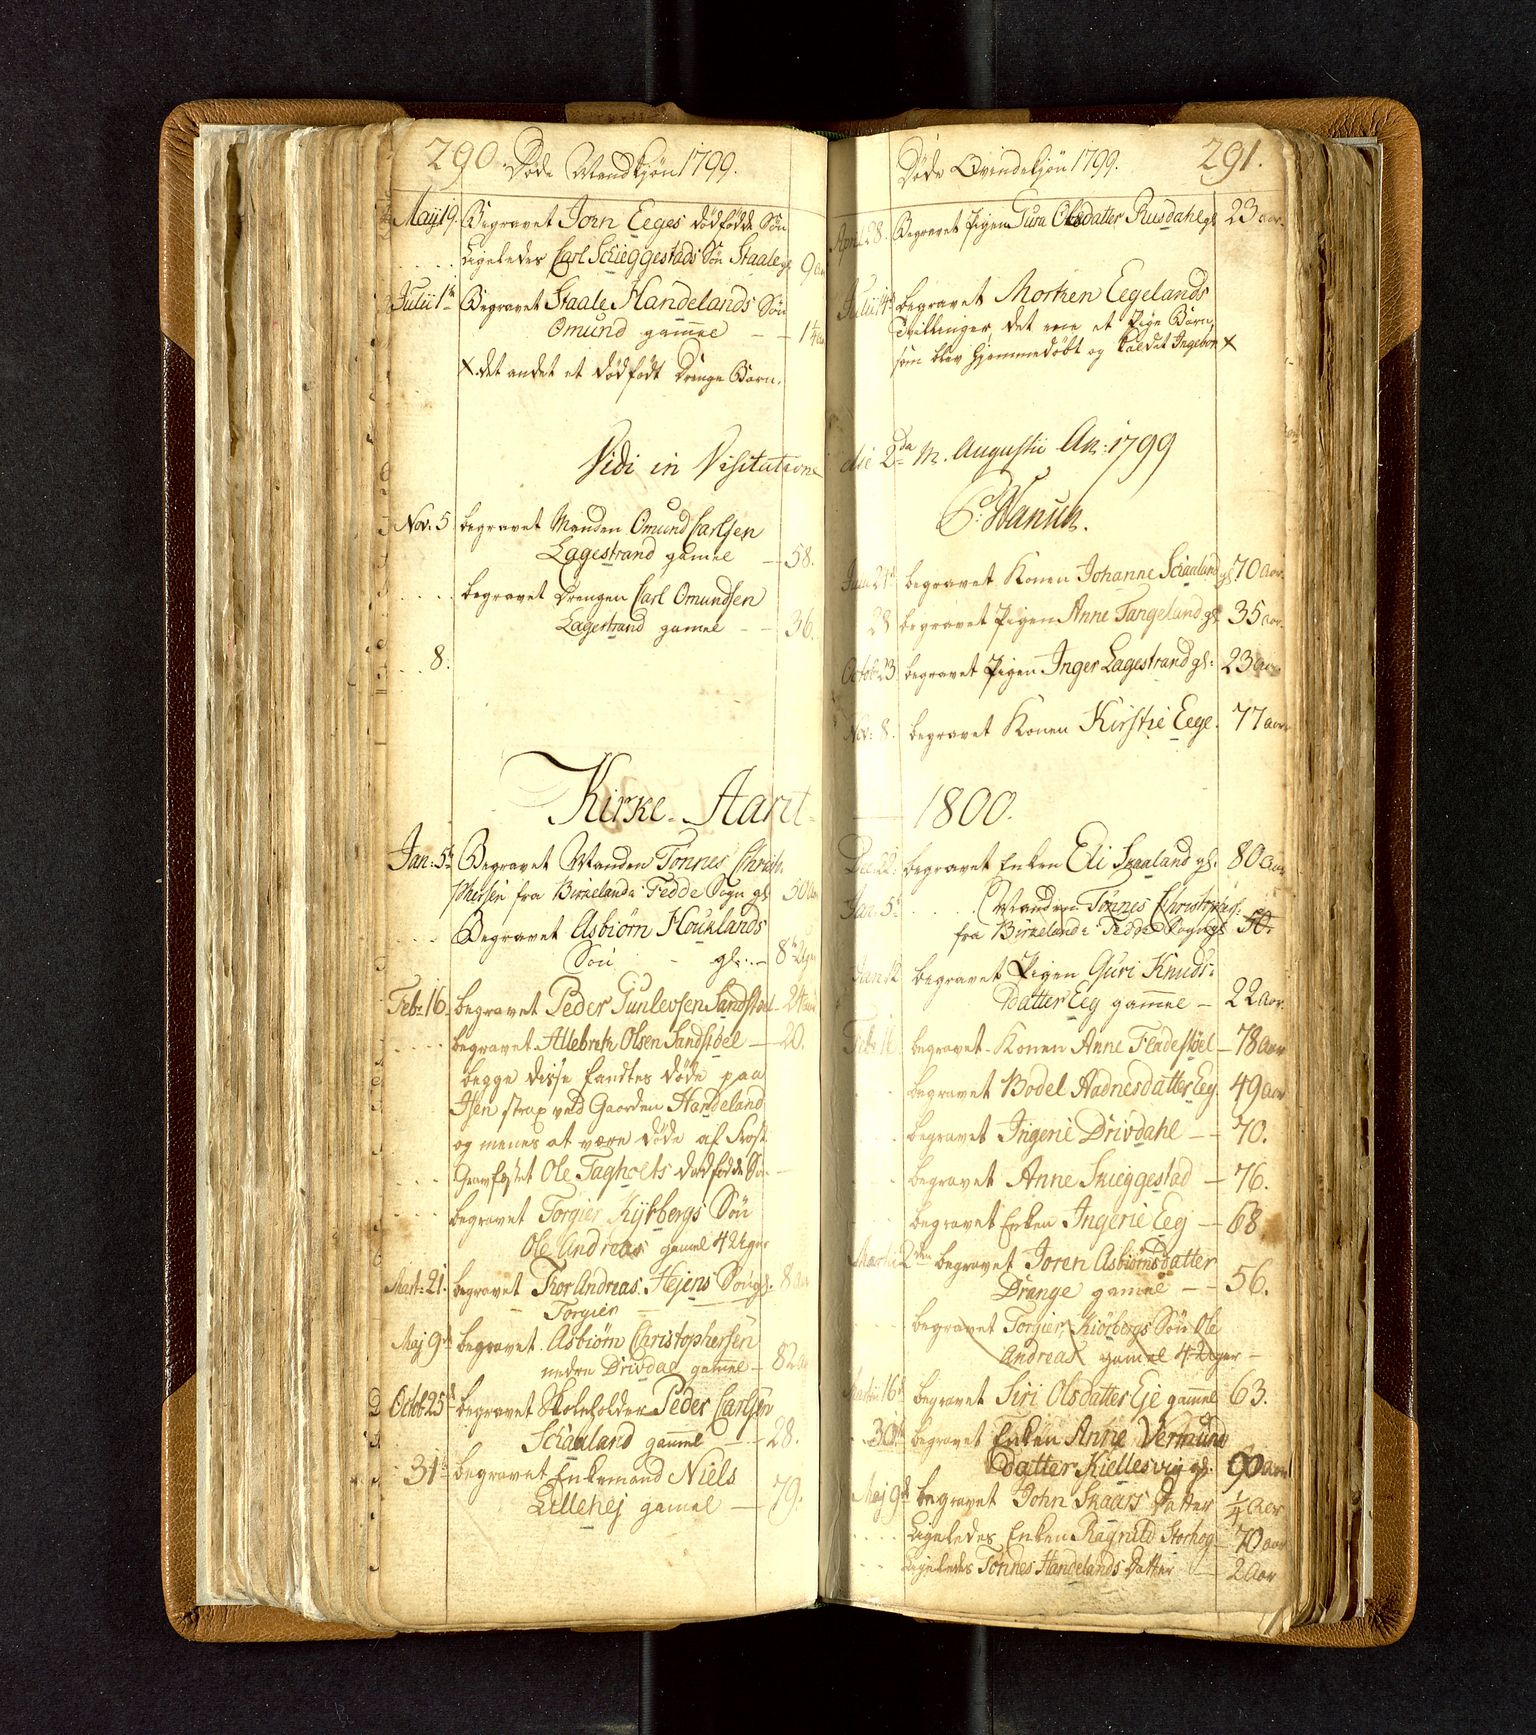 290. Døde Mandkjøn 1799.
Maij 19. Begravet Jorn Eeges dødfødde Søn
Ligeledes Carl Schieggestads Søn Staale gl 9 aar
Julii 1te Begravet Staale Handelands Søn
Omund gammel — 1 1/4 aar
X. det andet et dødfødt Drenge Barn.
Vidi in Visitatione
Nov: 5 begravet Manden Omund Carlsen
Lagestrand gamel — 58.
begravet Drengen Carl Omundsen
Lagestrand gamel — 36.
8.
Kirke-Aaret
Jan: 5te Begravet Manden Tønnes Christo-
phersen fra Birkeland i Fedde Sogn gl 50 aar
Begravet Asbiørn Houklands
Søn gl: — 8te Uger
Febr 16. begravet Peder Gunlevsen Sandstøel 24 aar
begravet Allebrek Olsen Sandstøel — 20.
begge disse fandtes døde paa
Isen strax ved Gaarden Handeland
og menes at være døde af Frost.
Gravfæstet Ole Tagholts dødfødde Søn —
begravet Torgier Kiørbergs Søn
Ole Andreas gamel 4 Uger
Mart: 21. begravet Thor Andreas Hejens Søn gl. 8 aar
Torgier
Maj 9de begravet Asbiørn Christophersen
nedre Drivdal gammel — 82 aar
Octob: 25de begravet Skoleholder Peder Carlsen
Schaaland gammel — 28.
31te begravet Enkemand Niels
Lillehej gamel — 79.
Døde Qvindekjøn 1799. 291.
April 28. Begravet Pigen Gura Olsdatter Rusdahl gl 23 aar.
Julii 14de begravet Morten Eegelands
Tvillinger, det ene et Pige Barn,
som blev hjemmedøbt og kaldet Ingebor X
die 2da M. Augusti An: 1799
P: Hansen.
begravet Konen Johanne Schaaland gl 70 aar.
28 begravet Pigen Anne Tangeland gl 35 aar.
Octob: 23 begravet Pigen Inger Lagestrand gl: 23 aar
Nov: 8. begravet Konen Kirstie Eege. 77 aar
1800.
Dec: 22. begravet Enken Eli Skaaland gl. 80 aar
Jan: 5te Manden Tønnes Christophers:
fra Birkeland i Fedde Sogn gl 50.
Jan: 12 begravet Pigen Guri Knuds-
datter Eeg gammel — 22 aar.
Febr 16 begravet Konen Anne Fladestøel — 78 aar
begravet Bodel Aadnesdatter Eeg 49 aar
begravet Ingerie Drivdahl — 70.
begravet Anne Skieggestad — 76.
begravet Enken Ingerie Eeg — 68
Martii 2den begravet Joren Asbiørnsdatter
Drange gamel — 56.
begravet Torgier Kiørbergs Søn Ole
Andreas gamel 4 Uger —
Martii 16de begravet Siri Olsdatter Eje gammel 63.
30te begravet Enken Anne Vermund
datter Kiellesvig gl. 90 aar
Maj 9de begravet John Skaars Datter 1/4 aar
Ligeledes Enken Ragnild Storhog 70 aar
Ligeledes Tønnes Handelands Datter — 2 aar